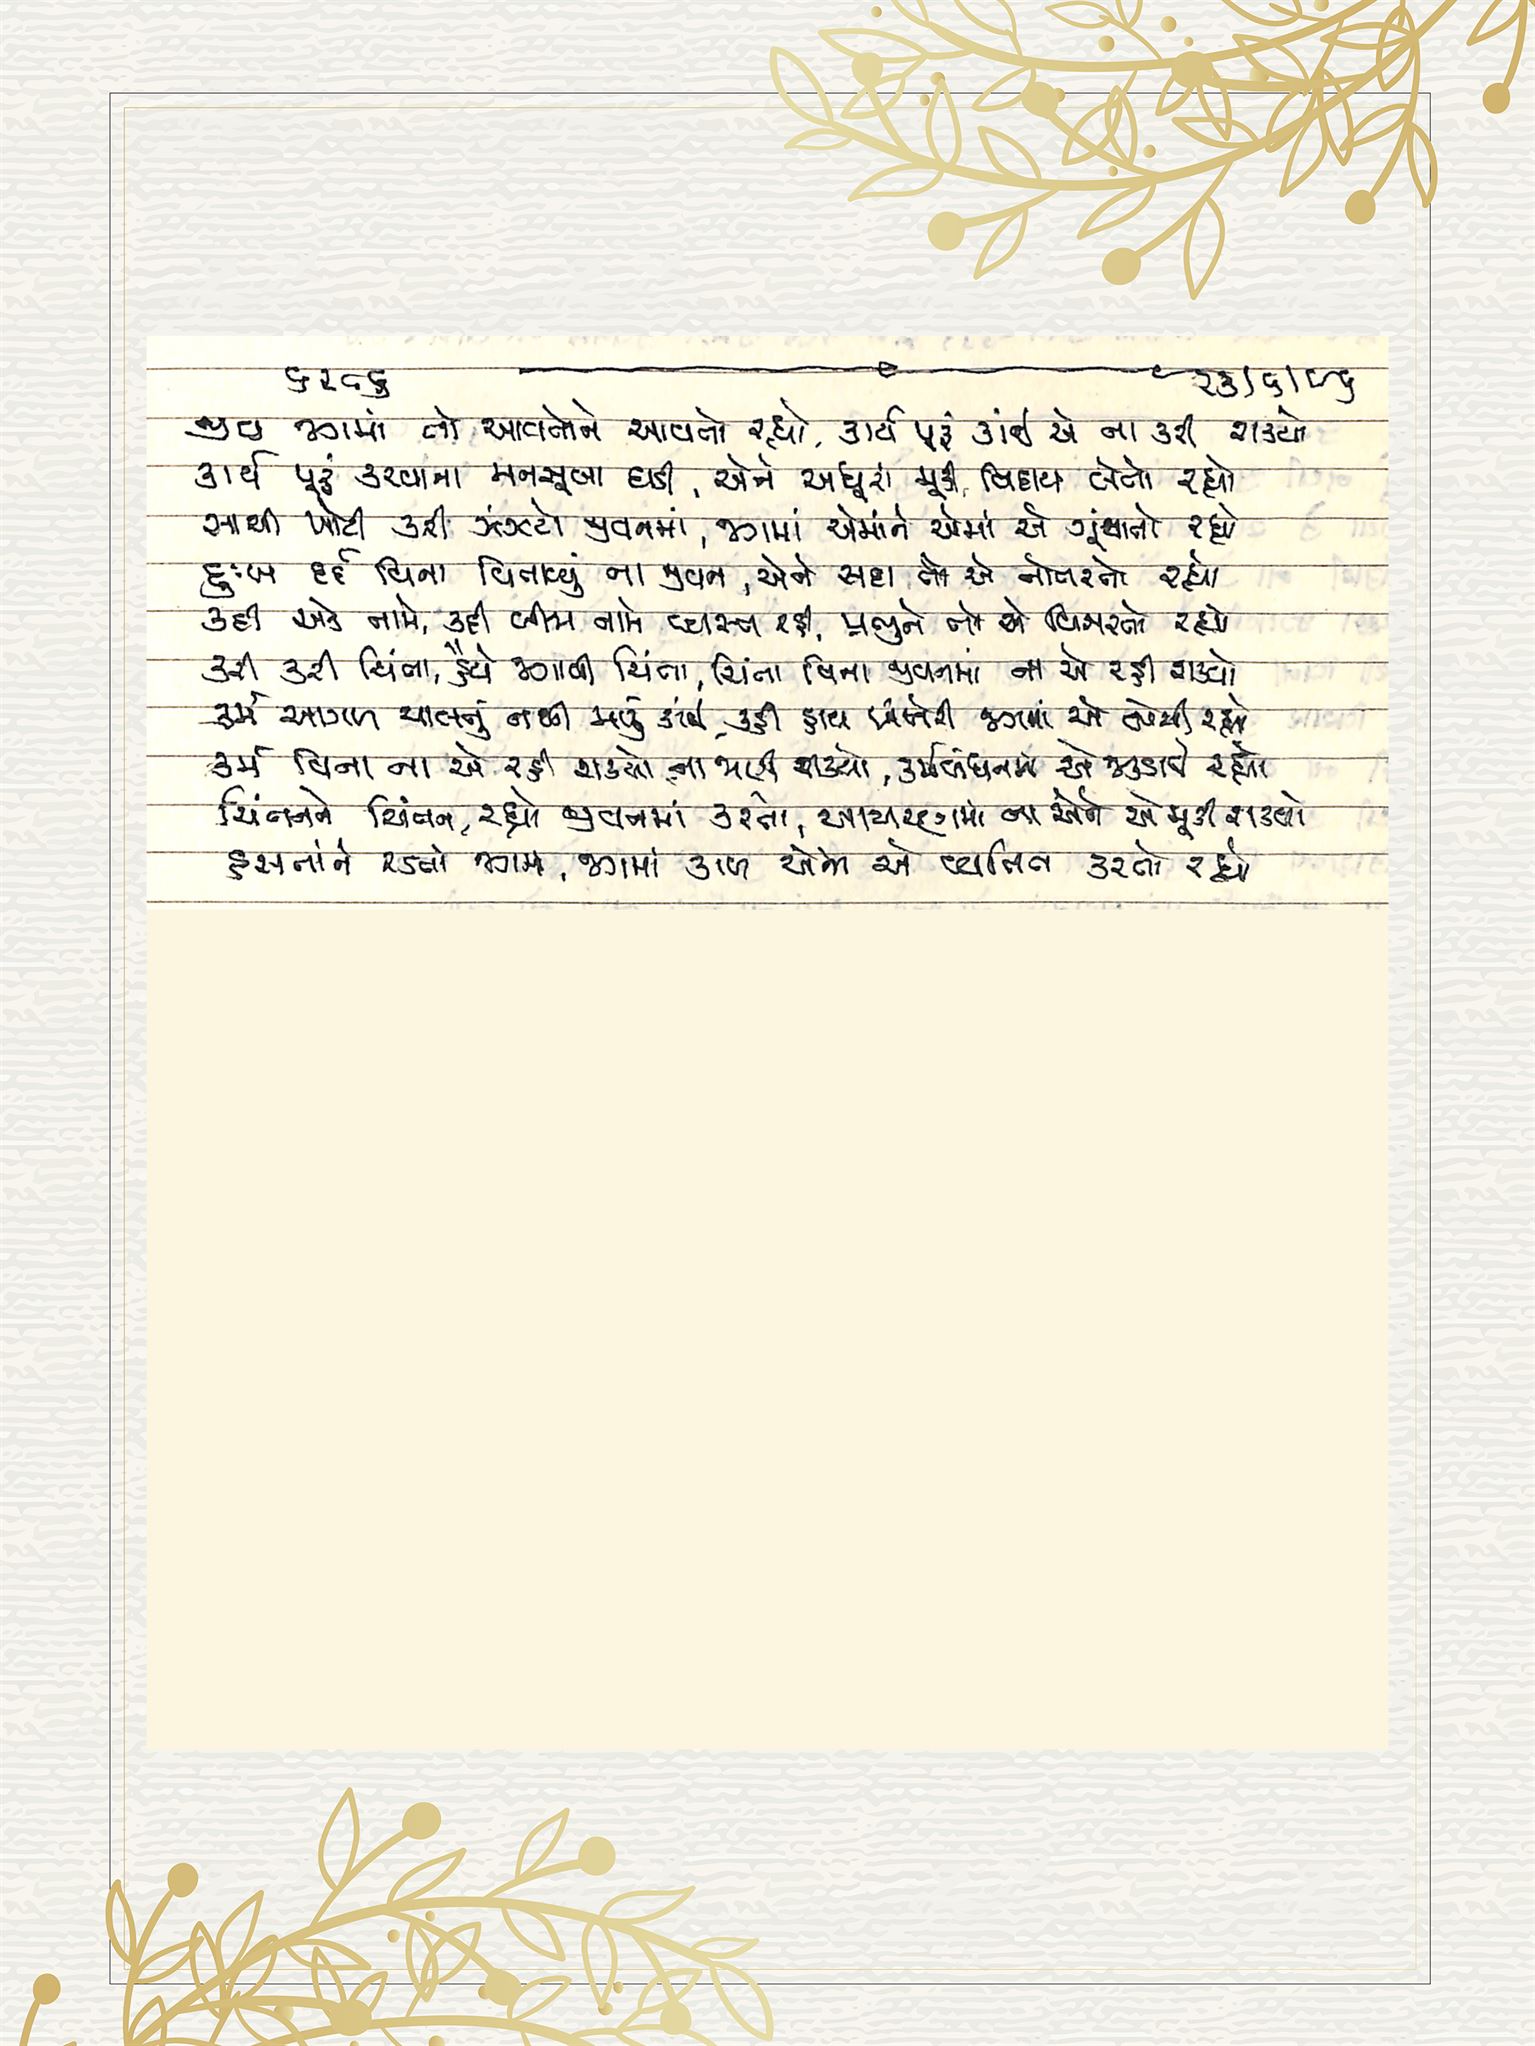 ૬૨૮૬ ૨૩/૬/૮૬
જીવ જગમાં તો આવતોને આવતો રહ્યો, કાર્ય પૂરું કાંઈ એ ના કરી શક્યો
કાર્ય પૂરું કરવાના મનસૂબા ઘડી, એને અધૂરાં મૂકી, વિદાય લેતો રહ્યો
સાચી ખોટી કરી ઝંઝટો જીવનમાં, જગમાં એમાંને એમાં એ ગૂંથાતો રહ્યો
દુઃખ દર્દ વિના વિતાવ્યું ના જીવન, એને સદા તો એ નોતરતો રહ્યો
કદી એક નામે, કદી બીજા નામે વ્યસ્ત રહી, પ્રભુને તો એ વિસરતો રહ્યો
કરી કરી ચિંતા, હૈયે જગાવી ચિંતા, ચિંતા વિના જીવનમાં ના એ રહી શક્યો
કર્મ આગળ ચાલતું નથી મારું કાંઈ, કહી હાથ ખંખેરી જગમાં એ રહ્યો
કર્મ વિના ના એ રહી શક્યો, ના જાણી શક્યો, કર્મબંધનમાં એ જકડાતો રહ્યો
ચિંતનને ચિંતન, રહ્યો જીવનમાં કરતો, આચરણમાં ના એને એ મૂકી શક્યો
હસતાંને રડતાં જગમાં, જગમાં કાળ એમ એ વ્યતિત કરતો રહ્યો